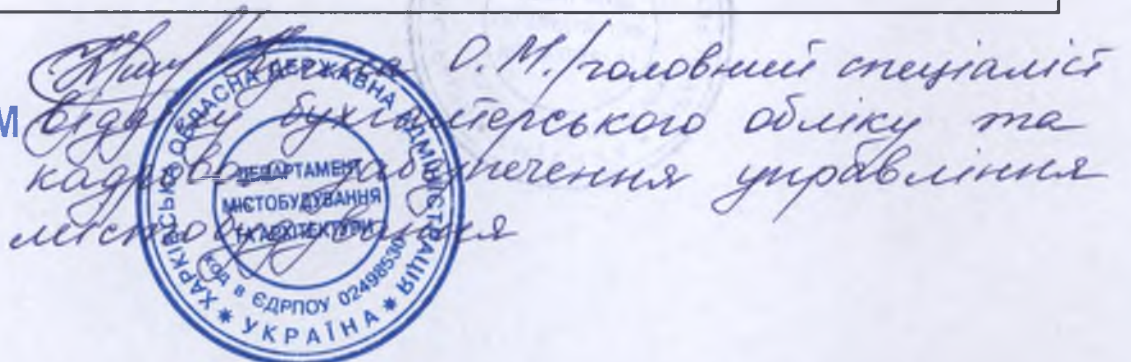 О. М./головний спеціаліст
М відділу бухгалтерського обліку та
кадрового забезпечення управління
містобудування
ХАРКІВСЬКА ОБЛАСНА ДЕРЖАВНА АДМІНІСТРАЦІЯ
ДЕПАРТАМЕНТ
МІСТОБУДУВАННЯ
ТА АРХІТЕКТУРИ
код в ЄДРПОУ 02498530
* УКРАЇНА *